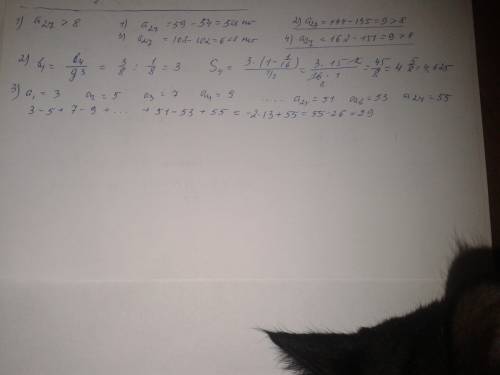 1) a₂₇ > 8 1) a₂₇ = 59 - 54 = 5 < 8 нет 2) a₂₇ = 144 - 135 = 9 > 8
3) a₂₇ = 108 - 102 = 6 < 8 нет 4) a₂₇ = 162 - 153 = 9 > 8
2) b₁ = b₄/q³ = 3/8 : 1/8 = 3 S₄ = 3·(1 - 1/16) / 1/2 = 3·15·2 / 16·1 = 45/8 = 4 5/8 = 4,625
3) a₁ = 3 a₂ = 5 a₃ = 7 a₄ = 9 ..... a₂₅ = 51 a₂₆ = 53 a₂₇ = 55
3 - 5 + 7 - 9 + ... + 51 - 53 + 55 = -2·13 + 55 = 55 - 26 = 29